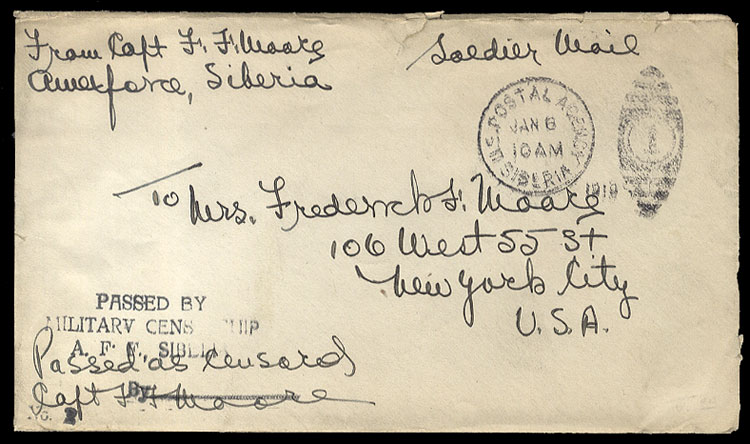 From Capt F. F. Moore
Amexforce, Siberia
Soldier Mail
U.S. POSTAL AGENCY
JAN 6
10 AM
SIBERIA
1919
To Mrs. Frederick F. Moore
106 West 55 St
New York City
U.S.A.
PASSED BY
MILITARY CENS SHIP
A. F. F., SIBE
Passed as Censored
By
Capt F F Moore
No.